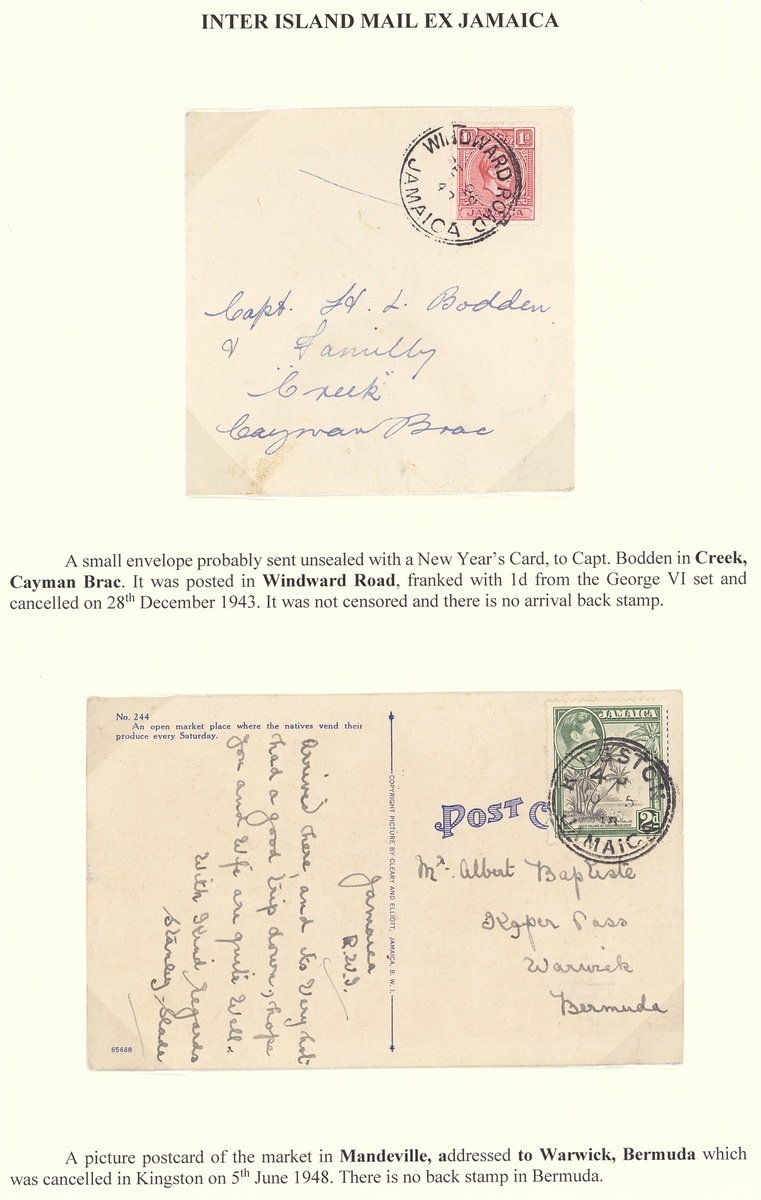 INTER ISLAND MAIL EX JAMAICA
WINDWARD ROAD
JAMAICA
1d
JAMAICA
Capt. H. L. Bodden
& Familly
"Creek"
Cayman Brac
A small envelope probably sent unsealed with a New Year's Card, to Capt. Bodden in Creek,
Cayman Brac. It was posted in Windward Road, franked with 1d from the George VI set and
cancelled on 28th December 1943. It was not censored and there is no arrival back stamp.
No. 244
An open market place where the natives vend their
produce every Saturday.
Jamaica
B.W.I.
Arrived here, and its Very hot
had a good trip down, hope
you and Wife are quite Well.
With Kind regards
Stanley Slade
65668
COPYRIGHT PICTURE BY CLEARY AND ELLIOTT, JAMAICA, B. W. I.
POST C
JAMAICA
2d
KINGSTON
JAMAICA
Mr. Albert Baptiste
Pass
Warwick
Bermuda
A picture postcard of the market in Mandeville, addressed to Warwick, Bermuda which
was cancelled in Kingston on 5th June 1948. There is no back stamp in Bermuda.